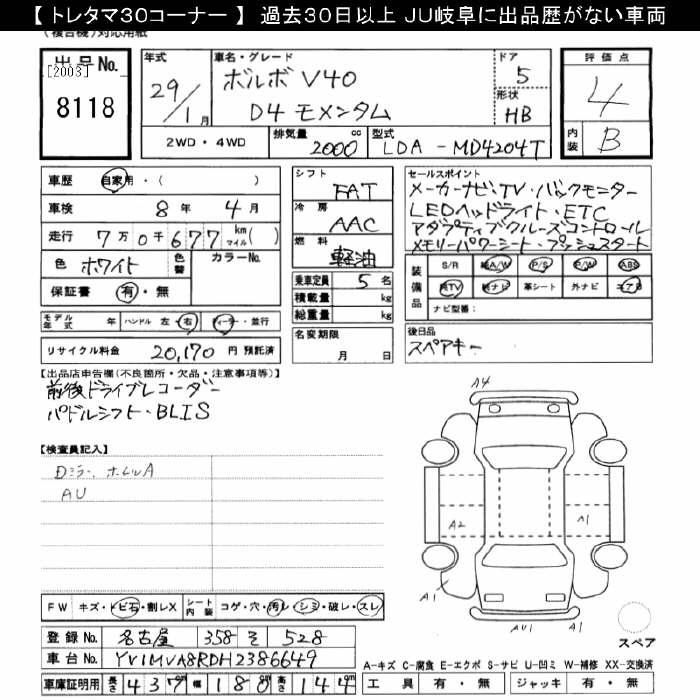 【 トレタマ30コーナー 】 過去30日以上 JU岐阜に出品歴がない車両
(複合機)対応用紙
出品No.
[2003]
8118
年式
29/1月
車名・グレード
ボルボ V40
D4 モメンタム
ドア
5
形状
HB
評価点
4
内装
B
2WD・4WD
排気量
2000 cc
型式
LDA-MD4204T
車歴 自家用・( )
車検 8年 4月
走行 7万0千677 km マイル( )
色 ホワイト 色替 カラーNo.
保証書 有・無
シフト
FAT
冷房
AAC
燃料
軽油
乗車定員 5名
積載量 kg
総重量 kg
セールスポイント
メーカーナビ・TV・バックモニター
LEDヘッドライト・ETC
アダプティブクルーズコントロール
メモリーパワーシート・プッシュスタート
装備品
S/R 純A/W P/S P/W ABS
純TV 純ナビ 革シート 外ナビ エアB
ナビ型番:
モデル年式 年 ハンドル 左・右 ディーラー・並行
リサイクル料金 20,170 円 預託済
名変期限
月 日
後日品
スペアキー
【出品店申告欄(不良箇所・欠品・注意事項等)】
前後ドライブレコーダー
パドルシフト・BLIS
【検査員記入】
Dミラー、ホイルA
AU
A4
A2
A1
A1
AU1
A1
スペア
FW キズ・トビ石・割レX シート内装 コゲ・穴・汚レ・シミ・破レ・スレ
登録No. 名古屋 358 そ 528
車台No. YV1MVA8RDH2386649
車庫証明用 長さ 437 幅 180 高さ 144
A-キズ C-腐食 E-エクボ S-サビ U-凹ミ W-補修 XX-交換済
工具 有・無 ジャッキ 有・無